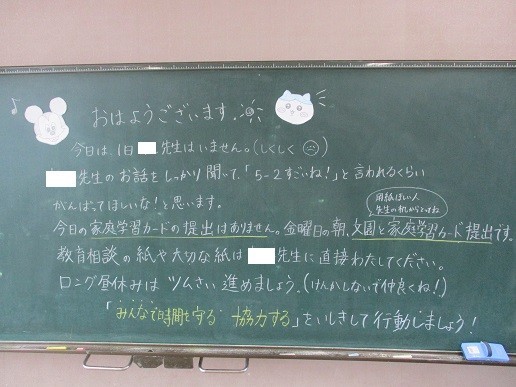 おはようございます。
今日は、1日 先生はいません。(しくしく)
先生のお話をしっかり聞いて、「5-2すごいね!」と言われるくらい
がんばってほしいな!と思います。
用紙ない人
先生の机からとってね
今日の家庭学習カードの提出はありません。金曜日の朝、文園と家庭学習カード提出です。
教育相談の紙や大切な紙は 先生に直接わたしてください。
ロング昼休みは ツムさい進めましょう。(けんかしないで仲良くね!)
「みんなで時間を守る 協力する」をいしきして行動しましょう!